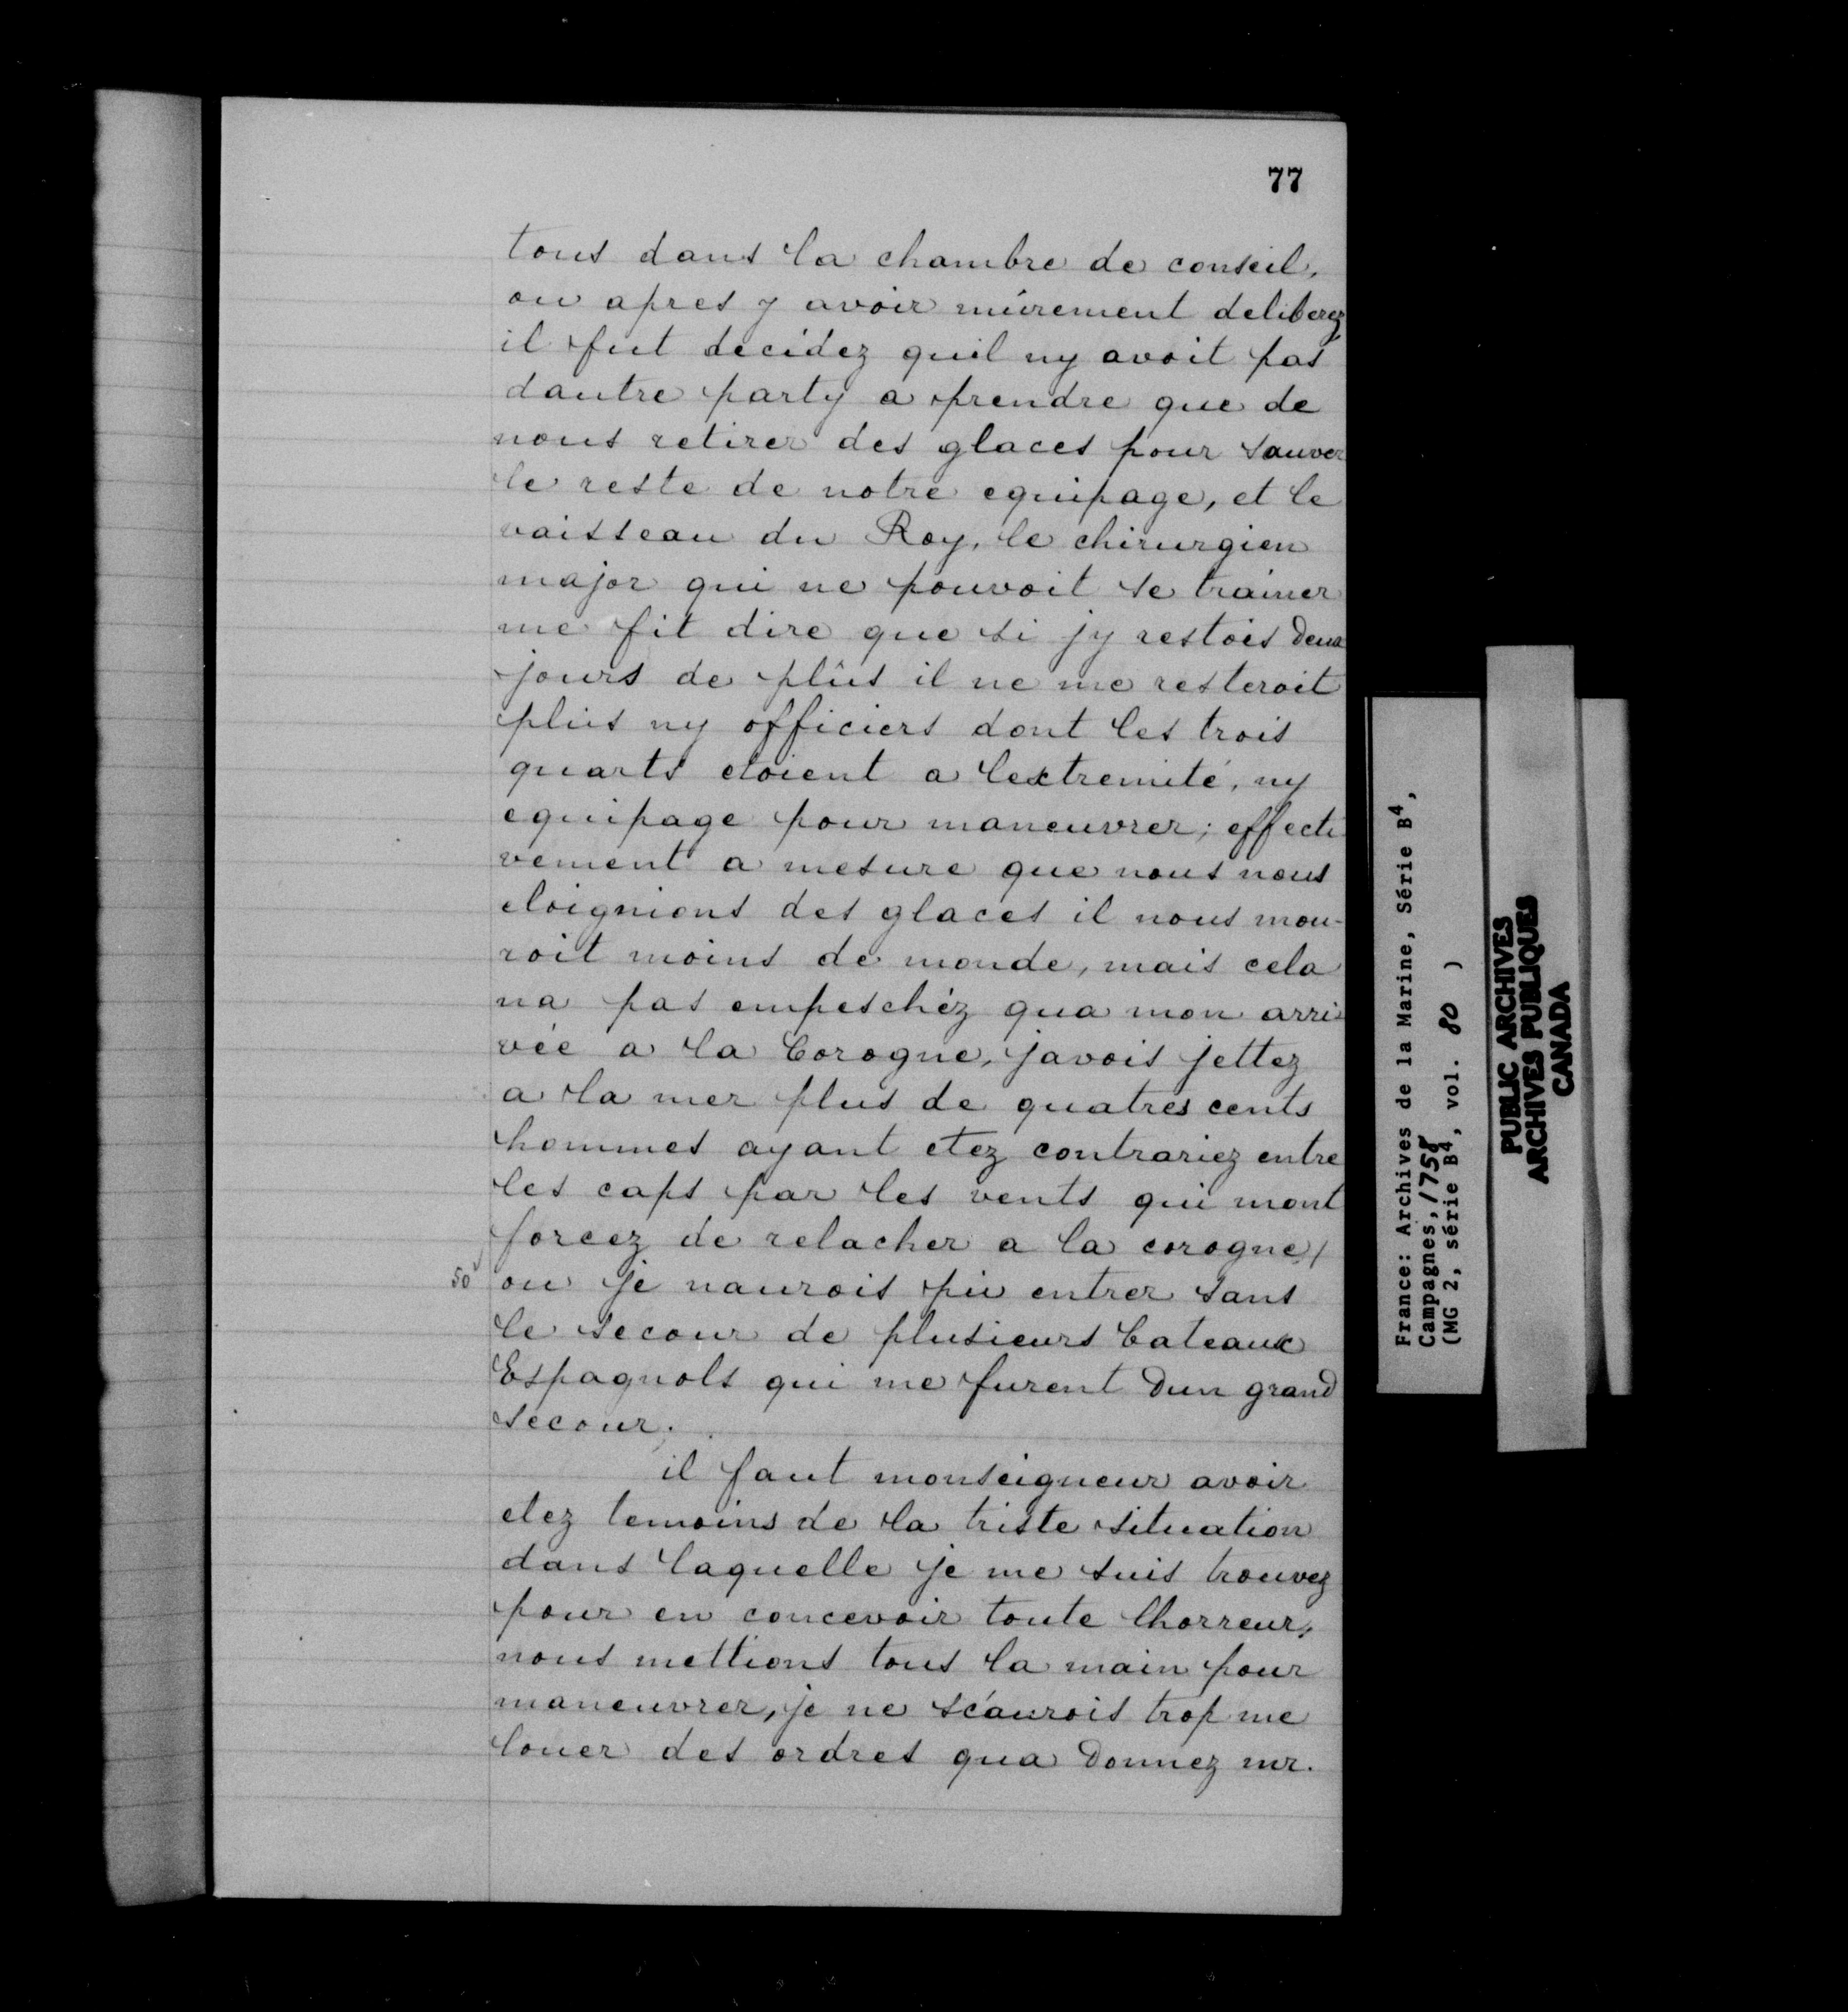 77
tous dans la chambre de conseil,
ou apres y avoir mûrement deliberez
il fut decidez quil ny avoit pas
dautre party a prendre que de
nous retirer des glaces pour sauver
le reste de notre equipage, et le
vaisseau du Roy, le chirurgien
major qui ne pouvoit se trainer
me fit dire que si jy restois deux
jours de plûs il ne me resteroit
plus ny officiers dont les trois
quarts etoient a lextremité, ny
equipage pour maneuvrer; effecti
vement a mesure que nous nous
eloignions des glaces il nous mou-
roit moins de monde, mais cela
na pas empeschéz qua mon arri
vée a la Corogne, javois jettez
a la mer plus de quatres cents
hommes ayant etez contrariez entre
les caps par les vents qui mont
forcez de relacher a la corogne/
50 ou je naurois pû entrer sans
le secour de plusieurs bateaux
Espagnols qui me furent dun grand
secour.
il faut monseigneur avoir
etez temoins de la triste situation
dans laquelle je me suis trouvez
pour en concevoir toute lhorreur,
nous mettions tous la main pour
maneuvrer, je ne scaurois trop me
louer des ordres qua donnez mr.
France: Archives de la Marine, Série B4,
Campagnes, 1758
(MG 2, série B4, vol. 80 )
PUBLIC ARCHIVES
ARCHIVES PUBLIQUES
CANADA